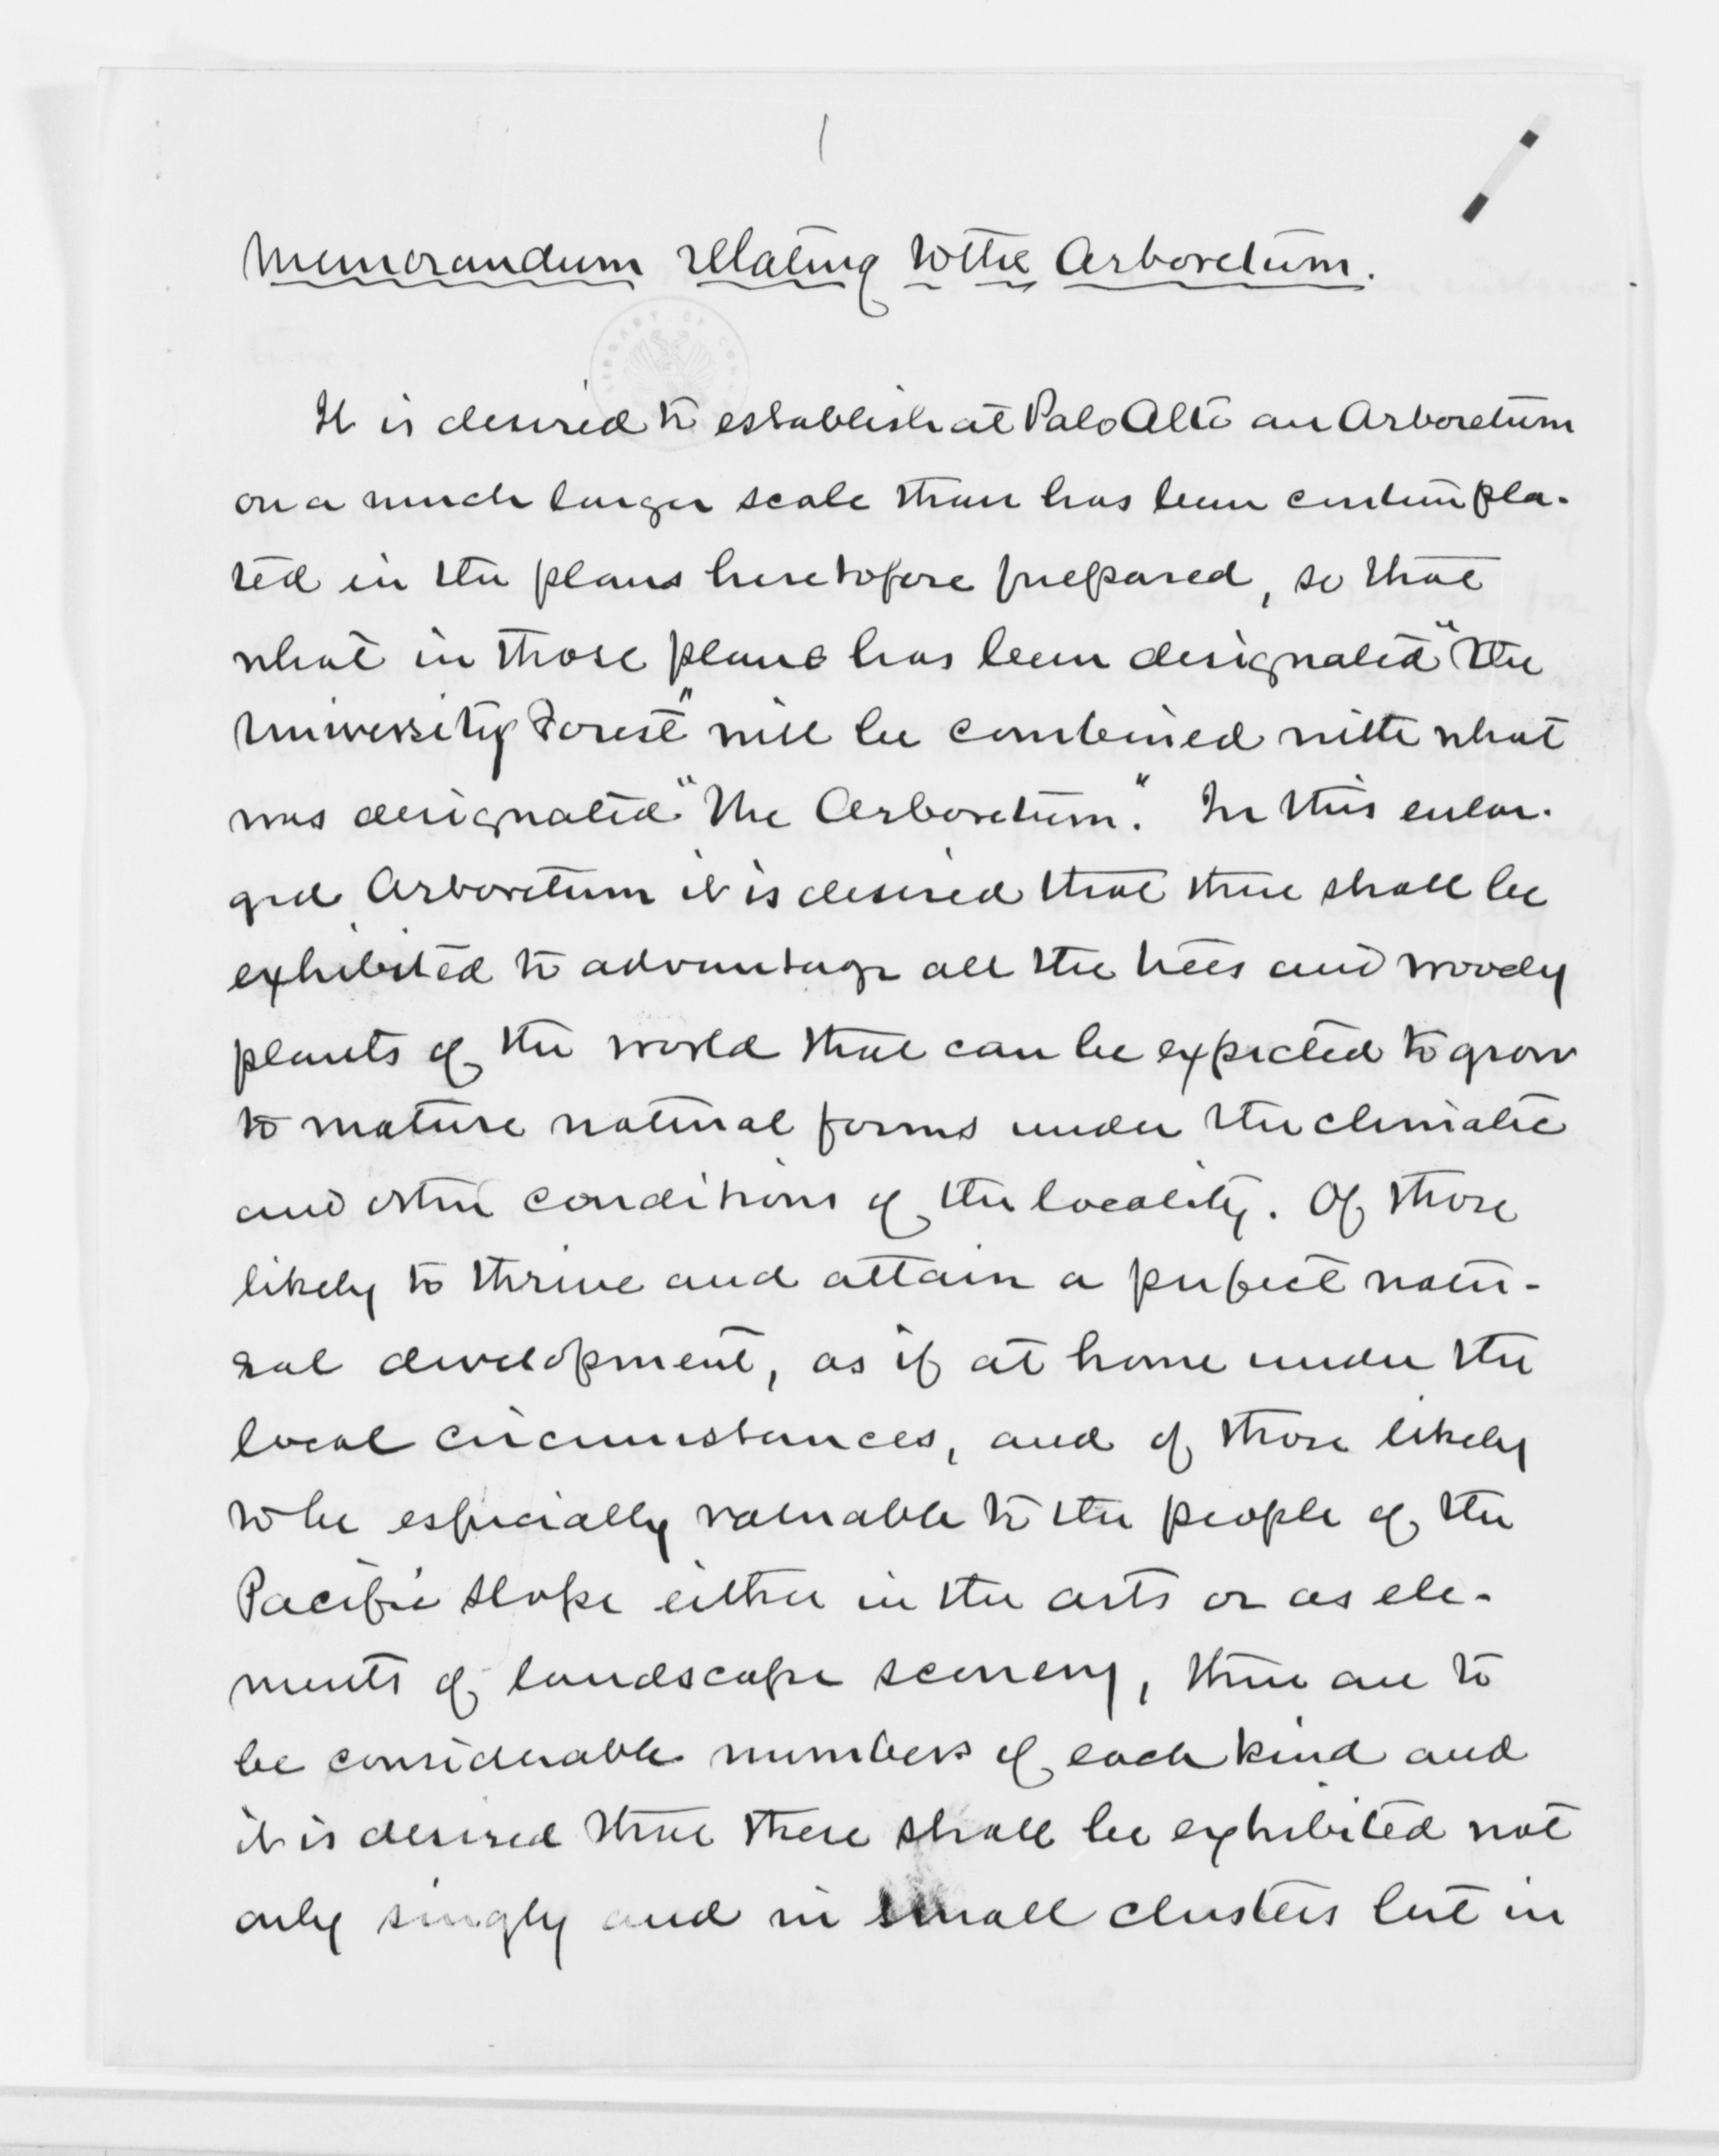 1
Memorandum relating to the Arboretum.
It is desired to establish at Palo Alto an Arboretum
on a much larger scale than has been contempla-
ted in the plans heretofore prepared, so that
what in those plans has been designated "the
University Forest" will be combined with what
was designated "The Arboretum." In this enlar-
ged Arboretum it is desired that there shall be
exhibited to advantage all the trees and woody
plants of the world that can be expected to grow
to mature natural forms under the climatic
and other conditions of the locality. Of those
likely to thrive and attain a perfect natu-
ral development, as if at home under the
local circumstances, and of those likely
to be especially valuable to the people of the
Pacific slope either in the arts or as ele-
ments of landscape scenery, there are to
be considerable numbers of each kind and
it is desired that these shall be exhibited not
only singly and in small clusters but in